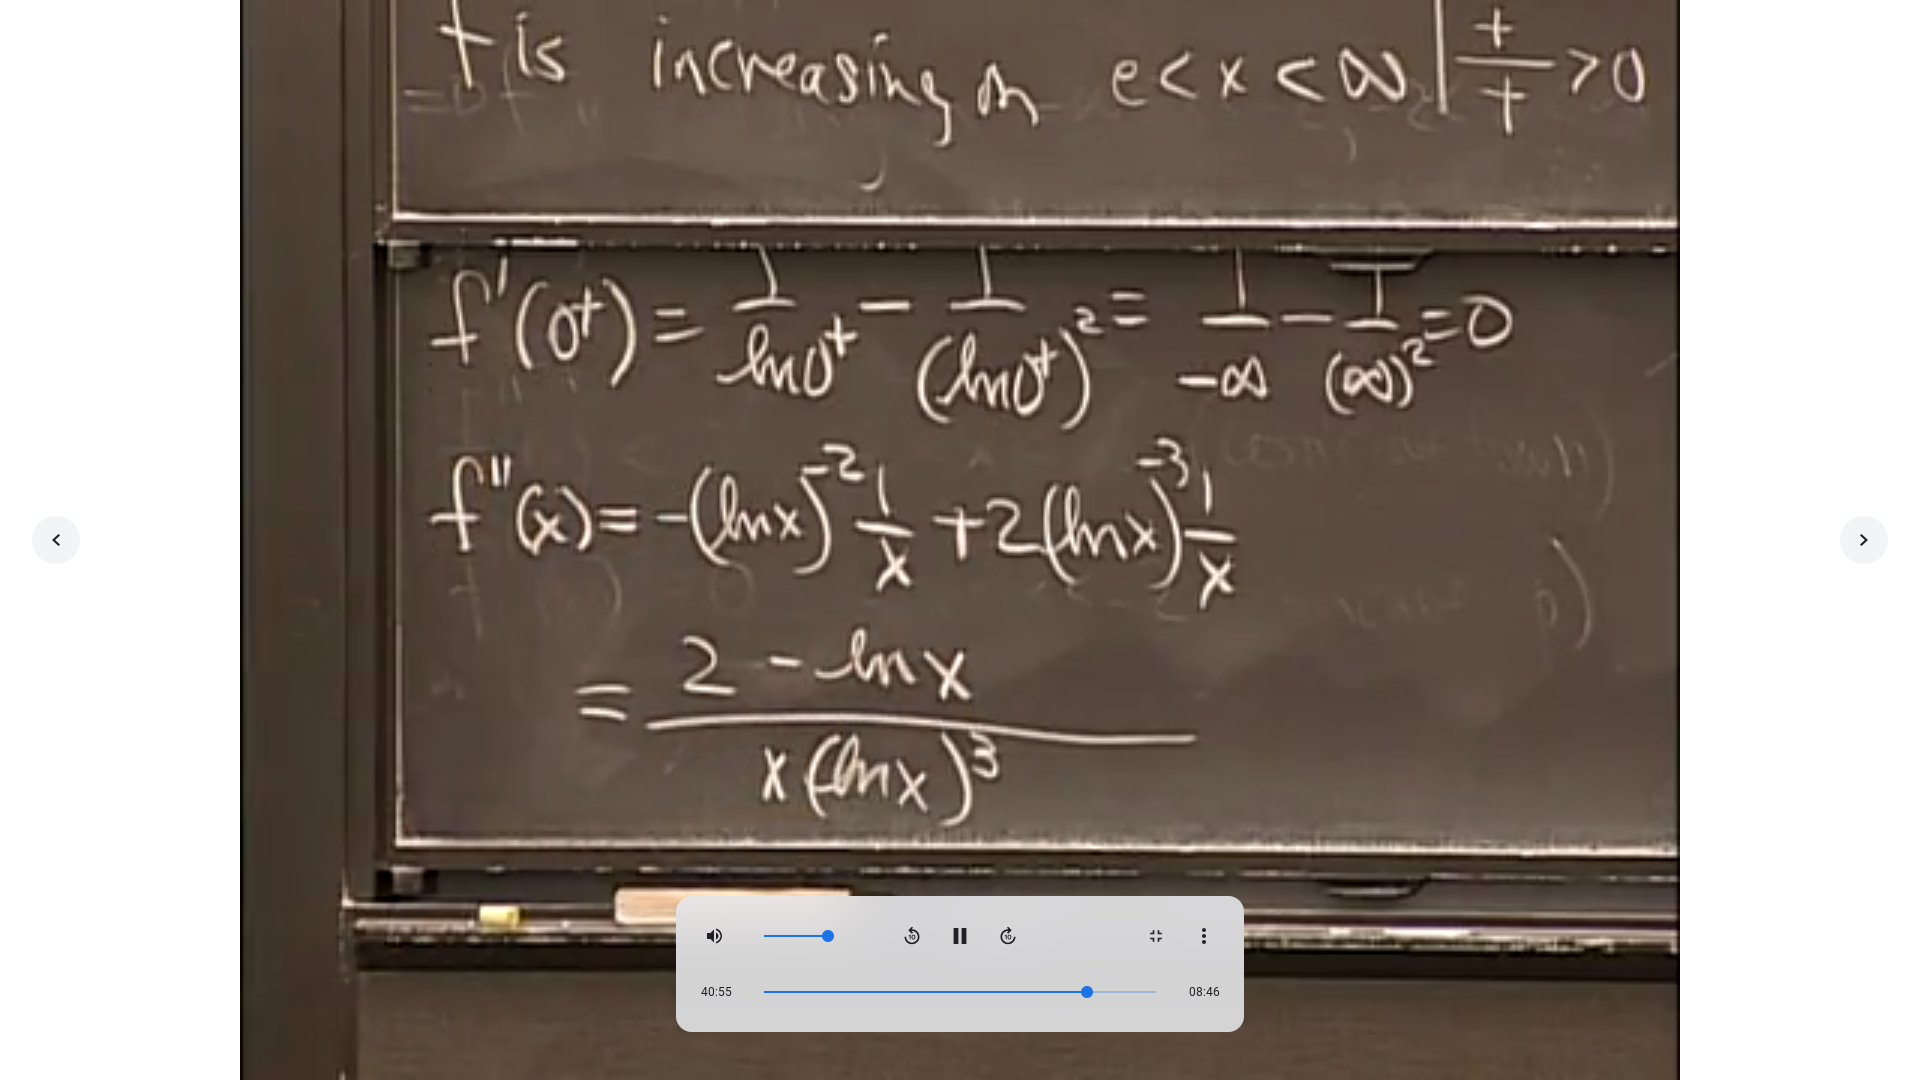 f is increasing on e < x < ∞ | +/+ > 0
f'(0⁺) = 1/ln0⁺ - 1/(ln0⁺)² = 1/-∞ - 1/(∞)² = 0
f''(x) = -(lnx)⁻² 1/x + 2(lnx)⁻³ 1/x
= 2 - lnx / x(lnx)³
10 10
40:55 08:46